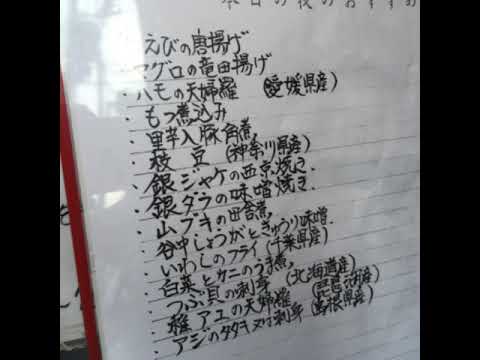 本日の夜のおすすめ
えびの唐揚げ
マグロの竜田揚げ
・ハモの天婦羅 (愛媛県産)
・もつ煮込み
・里芋入豚角煮
・枝豆 (神奈川県産)
・銀ジャケの西京焼き
・銀ダラの味噌焼き
・山ブキの田舎煮
・谷中しょうがときゅうり味噌
・いわしのフライ(千葉県産)
・白菜とカニのうま煮
・つぶ貝の刺身 (北海道産)
・稚アユの天婦羅 (琵琶湖産)
・アジのタタキ又は刺身 (島根県産)